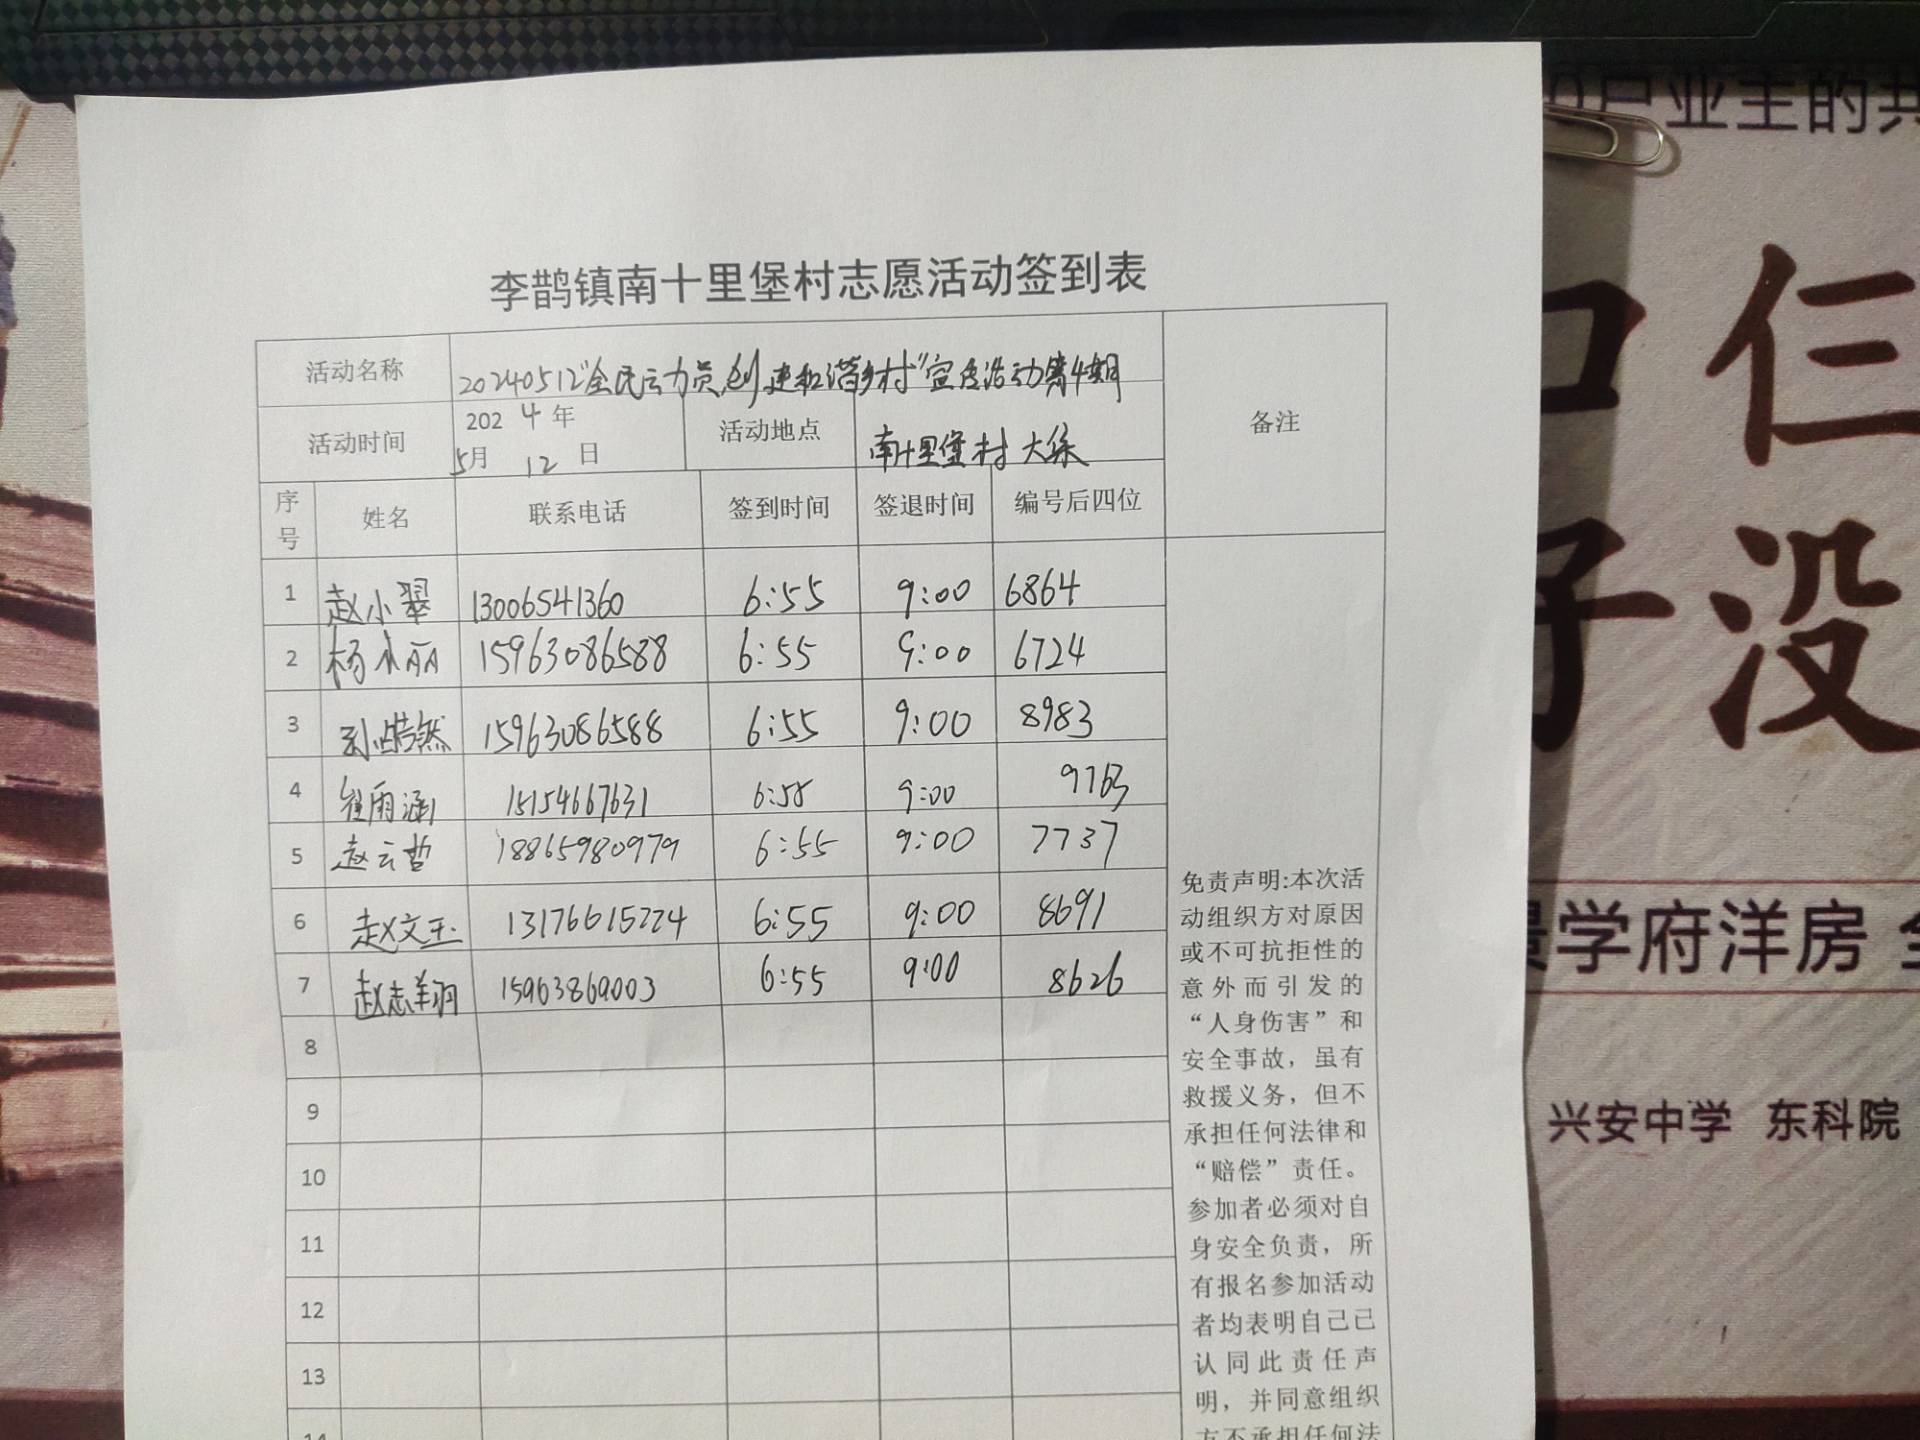 李鹊镇南十里堡村志愿活动签到表
活动名称 20240512"全民云力员,创建和谐乡村"宣传活动第4期
活动时间 2024年 5月12日 活动地点 南十里堡村大集
备注
序号 姓名 联系电话 签到时间 签退时间 编号后四位
1 赵小翠 13006541360 6:55 9:00 6864
2 杨小丽 15963086588 6:55 9:00 6724
3 孙皓然 15963086588 6:55 9:00 8983
4 崔雨涵 15154667631 6:55 9:00 9763
5 赵云哲 18865980979 6:55 9:00 7737
6 赵文玉 13176615224 6:55 9:00 8691
7 赵志翔 15963869003 6:55 9:00 8626
8
9
10
11
12
13
14
免责声明:本次活
动组织方对原因
或不可抗拒性的
意外而引发的
“人身伤害”和
安全事故，虽有
救援义务，但不
承担任何法律和
“赔偿”责任。
参加者必须对自
身安全负责，所
有报名参加活动
者均表明自己已
认同此责任声
明，并同意组织
方不承担任何法
户业主的共
口仨
子没
景学府洋房
兴安中学 东科院